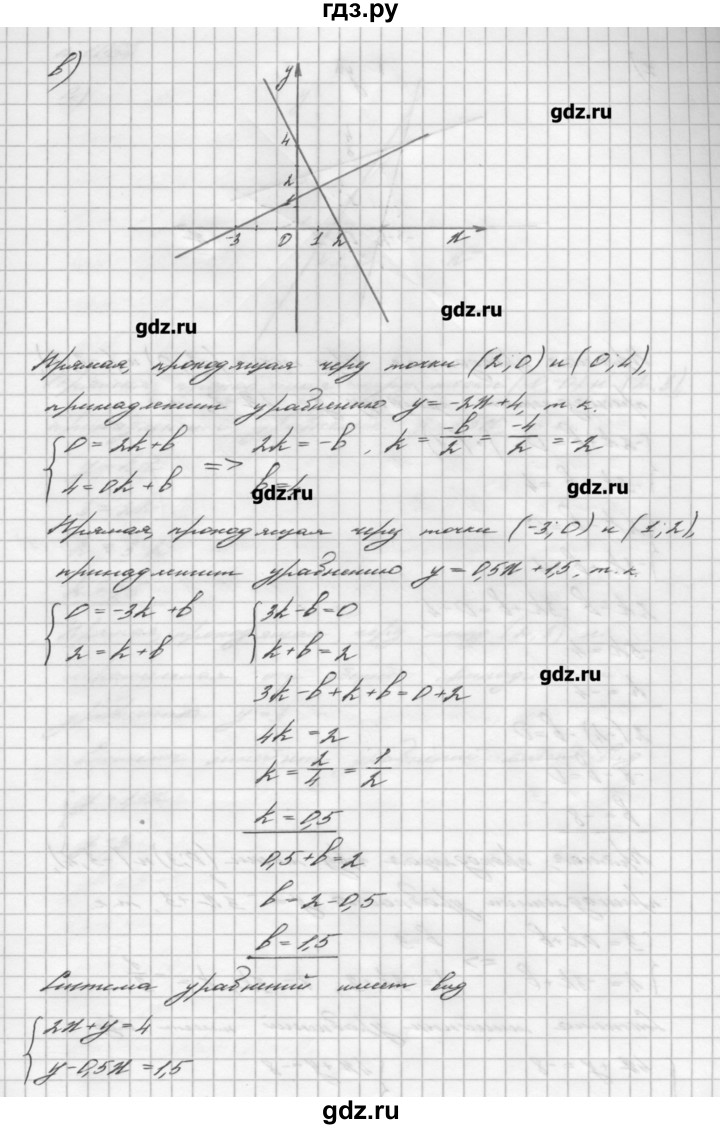 гдз.ру
в)
y
gdz.ru
4
2
1
-3 0 1 2 x
gdz.ru
gdz.ru
Прямая, проходящая через точки (2;0) и (0;4),
принадлежит уравнению y=-2x+4, т.к.
{0=2k+b => 2k=-b, k=-b/2=-4/2=-2
4=0k+b b=4
gdz.ru
gdz.ru
Прямая, проходящая через точки (-3;0) и (1;2),
принадлежит уравнению y=0,5x+1,5, т.к.
{0=-3k+b {3k-b=0
2=k+b k+b=2
gdz.ru
3k-b+k+b=0+2
4k=2
k=2/4=1/2
k=0,5
0,5+b=2
b=2-0,5
b=1,5
Система уравнений имеет вид
{2x+y=4
y-0,5x=1,5
gdz.ru